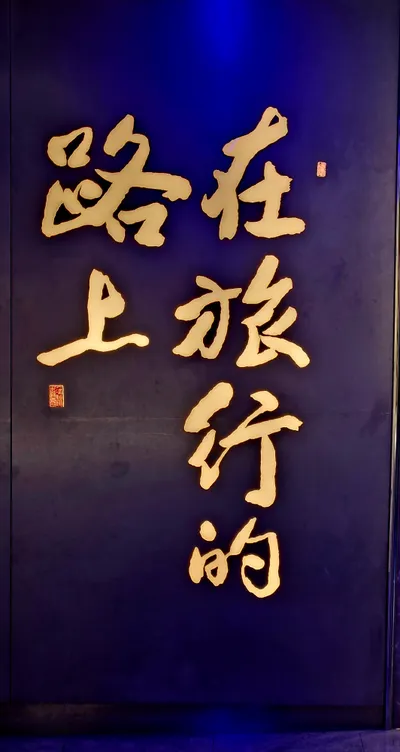 在旅行的
路上